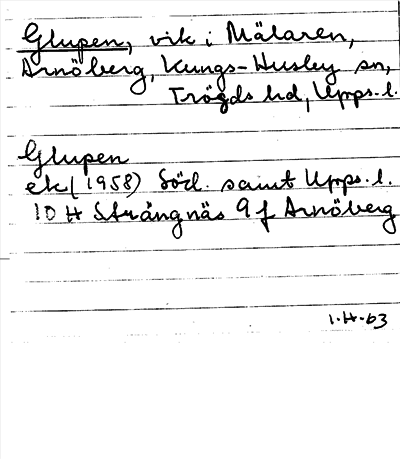 Glupen, vik i Mälaren,
Arnöberg, Kungs-Husby sn,
Trögds hd, Upps. l.
Glupen
ek (1958) Söd. samt Upps. l.
10 H Strängnäs 9 f Arnöberg
1.H.63